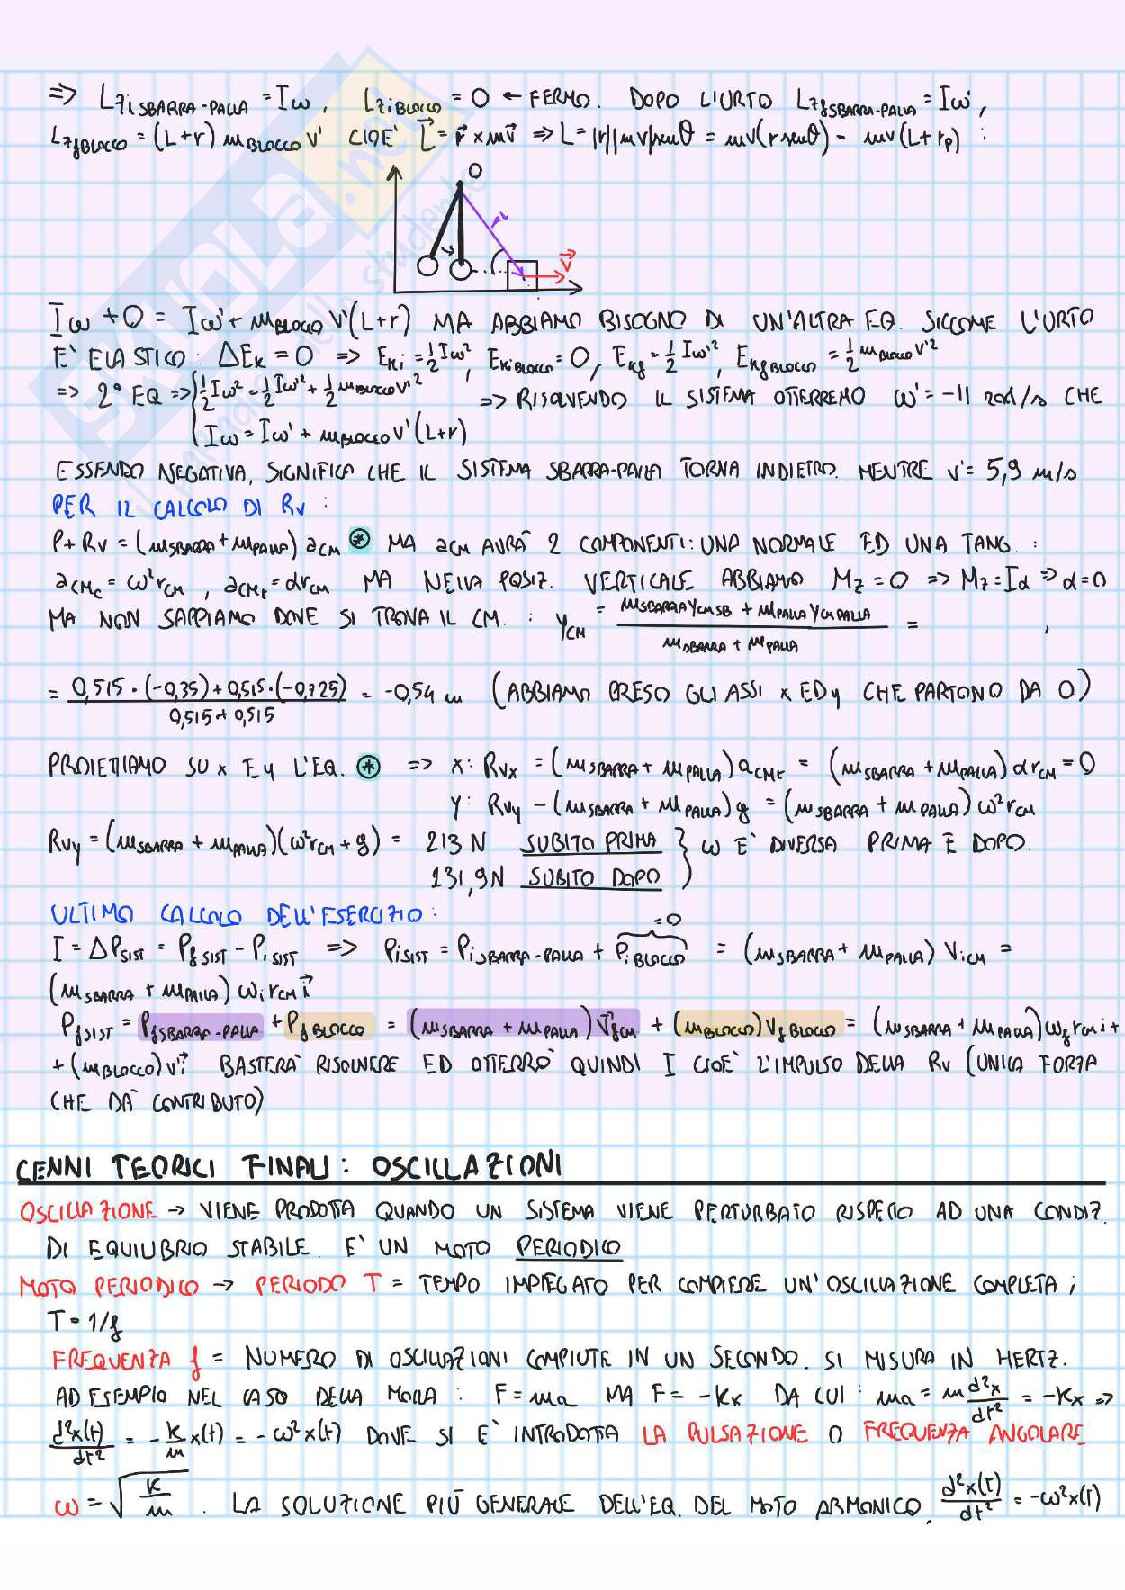 => L_zi SBARRA-PALLA = Iω, L_zi BLOCCO = 0 ← FERMO. DOPO L'URTO L_zf SBARRA-PALLA = Iω',
L_zf BLOCCO = (L+r) m_BLOCCO V' CIOE' L⃗ = r⃗ x mv⃗ => L = |r||mv|senθ = mv(r senθ) - mv(L+r_p) :
O
r
V⃗
Iω + 0 = Iω' + m_BLOCCO V'(L+r) MA ABBIAMO BISOGNO DI UN'ALTRA EQ. SICCOME L'URTO
E' ELASTICO: ΔE_K = 0 => E_Ki = 1/2 Iω², E_Ki BLOCCO = 0, E_Kf = 1/2 Iω'², E_Kf BLOCCO = 1/2 m_BLOCCO V'²
=> 2ª EQ => { 1/2 Iω² = 1/2 Iω'² + 1/2 m_BLOCCO V'² => RISOLVENDO IL SISTEMA OTTERREMO ω' = -11 rad/s CHE
Iω = Iω' + m_BLOCCO V'(L+r)
ESSENDO NEGATIVA, SIGNIFICA CHE IL SISTEMA SBARRA-PALLA TORNA INDIETRO. MENTRE V' = 5,9 m/s
PER IL CALCOLO DI Rv :
P + Rv = (m_SBARRA + m_PALLA) a_CM ⊛ MA a_CM AVRA' 2 COMPONENTI: UNA NORMALE ED UNA TANG. :
a_CMc = ω² r_CM , a_CMt = α r_CM MA NELLA POSIZ. VERTICALE ABBIAMO M_z = 0 => M_z = Iα => α = 0
MA NON SAPPIAMO DOVE SI TROVA IL CM. : y_CM = (m_SBARRA y_CM SB + m_PALLA y_CM PALLA) / (m_SBARRA + m_PALLA) =
= (0,515 · (-0,35) + 0,515 · (-0,725)) / (0,515 + 0,515) = -0,54 m (ABBIAMO PRESO GLI ASSI x ED y CHE PARTONO DA O)
PROIETTIAMO SU x E y L'EQ. ⊛ => x: Rvx = (m_SBARRA + m_PALLA) a_CMt = (m_SBARRA + m_PALLA) α r_CM = 0
Y: Rvy - (m_SBARRA + m_PALLA) g = (m_SBARRA + m_PALLA) ω² r_CM
Rvy = (m_SBARRA + m_PALLA)(ω² r_CM + g) = 213 N SUBITO PRIMA } ω E' DIVERSA PRIMA E DOPO
131,9 N SUBITO DOPO
ULTIMO CALCOLO DELL'ESERCIZIO:
I = ΔP_SIST = P_f SIST - P_i SIST => P_i SIST = P_i SBARRA-PALLA + P_i BLOCCO (= 0) = (m_SBARRA + m_PALLA) V_iCM =
(m_SBARRA + m_PALLA) ω_i r_CM i⃗
P_f SIST = P_f SBARRA-PALLA + P_f BLOCCO = (m_SBARRA + m_PALLA) V⃗_fCM + (m_BLOCCO) V_f BLOCCO = (m_SBARRA + m_PALLA) ω_f r_CM i +
+ (m_BLOCCO) V' i⃗ BASTERA' RISOLVERE ED OTTERRO' QUINDI I CIOE' L'IMPULSO DELLA Rv (UNICA FORZA
CHE DA' CONTRIBUTO)
CENNI TEORICI FINALI: OSCILLAZIONI
OSCILLAZIONE → VIENE PRODOTTA QUANDO UN SISTEMA VIENE PERTURBATO RISPETTO AD UNA CONDIZ.
DI EQUILIBRIO STABILE. E' UN MOTO PERIODICO
MOTO PERIODICO → PERIODO T = TEMPO IMPIEGATO PER COMPIERE UN'OSCILLAZIONE COMPLETA;
T = 1/f
FREQUENZA f = NUMERO DI OSCILLAZIONI COMPIUTE IN UN SECONDO. SI MISURA IN HERTZ.
AD ESEMPIO NEL CASO DELLA MOLLA : F = ma MA F = -Kx DA CUI : ma = m d²x/dt² = -Kx =>
d²x(t)/dt² = - K/m x(t) = - ω² x(t) DOVE SI E' INTRODOTTA LA PULSAZIONE O FREQUENZA ANGOLARE
ω = √(K/m) . LA SOLUZIONE PIU' GENERALE DELL'EQ. DEL MOTO ARMONICO, d²x(t)/dt² = -ω² x(t)